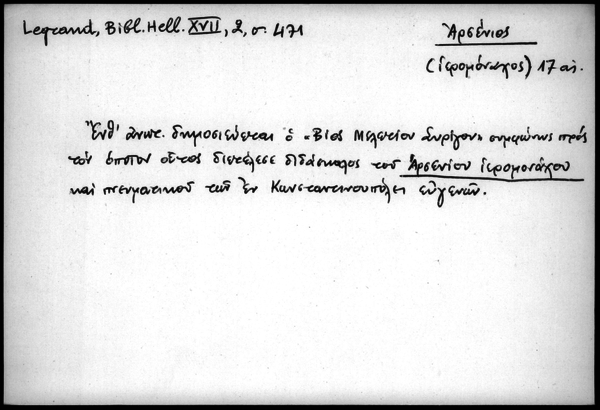 Legrand, Bibl. Hell. XVII, 2, σ. 471
Ἀρσένιος
(ἱερομόναχος) 17 αἰ.
Ἔνθ' ἀνωτ. δημοσιεύεται ὁ «Βίος Μελετίου Συρίγου» συμφώνως πρὸς
τὸν ὁποῖον οὗτος διετέλεσε διδάσκαλος τοῦ Ἀρσενίου ἱερομονάχου
καὶ πνευματικοῦ τῶν ἐν Κωνσταντινουπόλει εὐγενῶν.